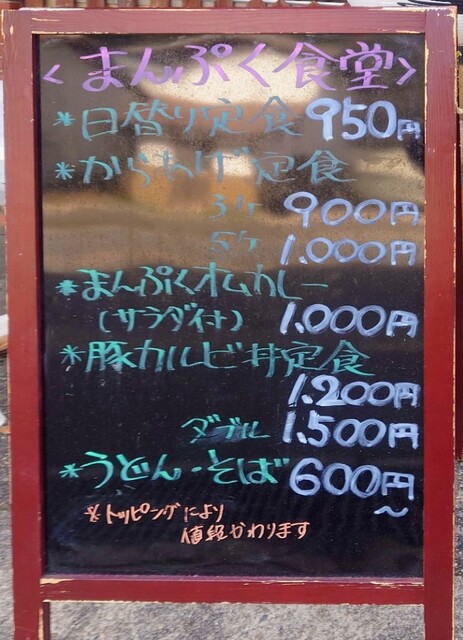 ＜まんぷく食堂＞
*日替り定食 950円
*からあげ定食
3ケ 900円
5ケ 1.000円
*まんぷくオムカレー
(サラダ付) 1.000円
*豚カルビ丼定食
1.200円
ダブル 1.500円
*うどん・そば 600円
～
※トッピングにより
値段かわります